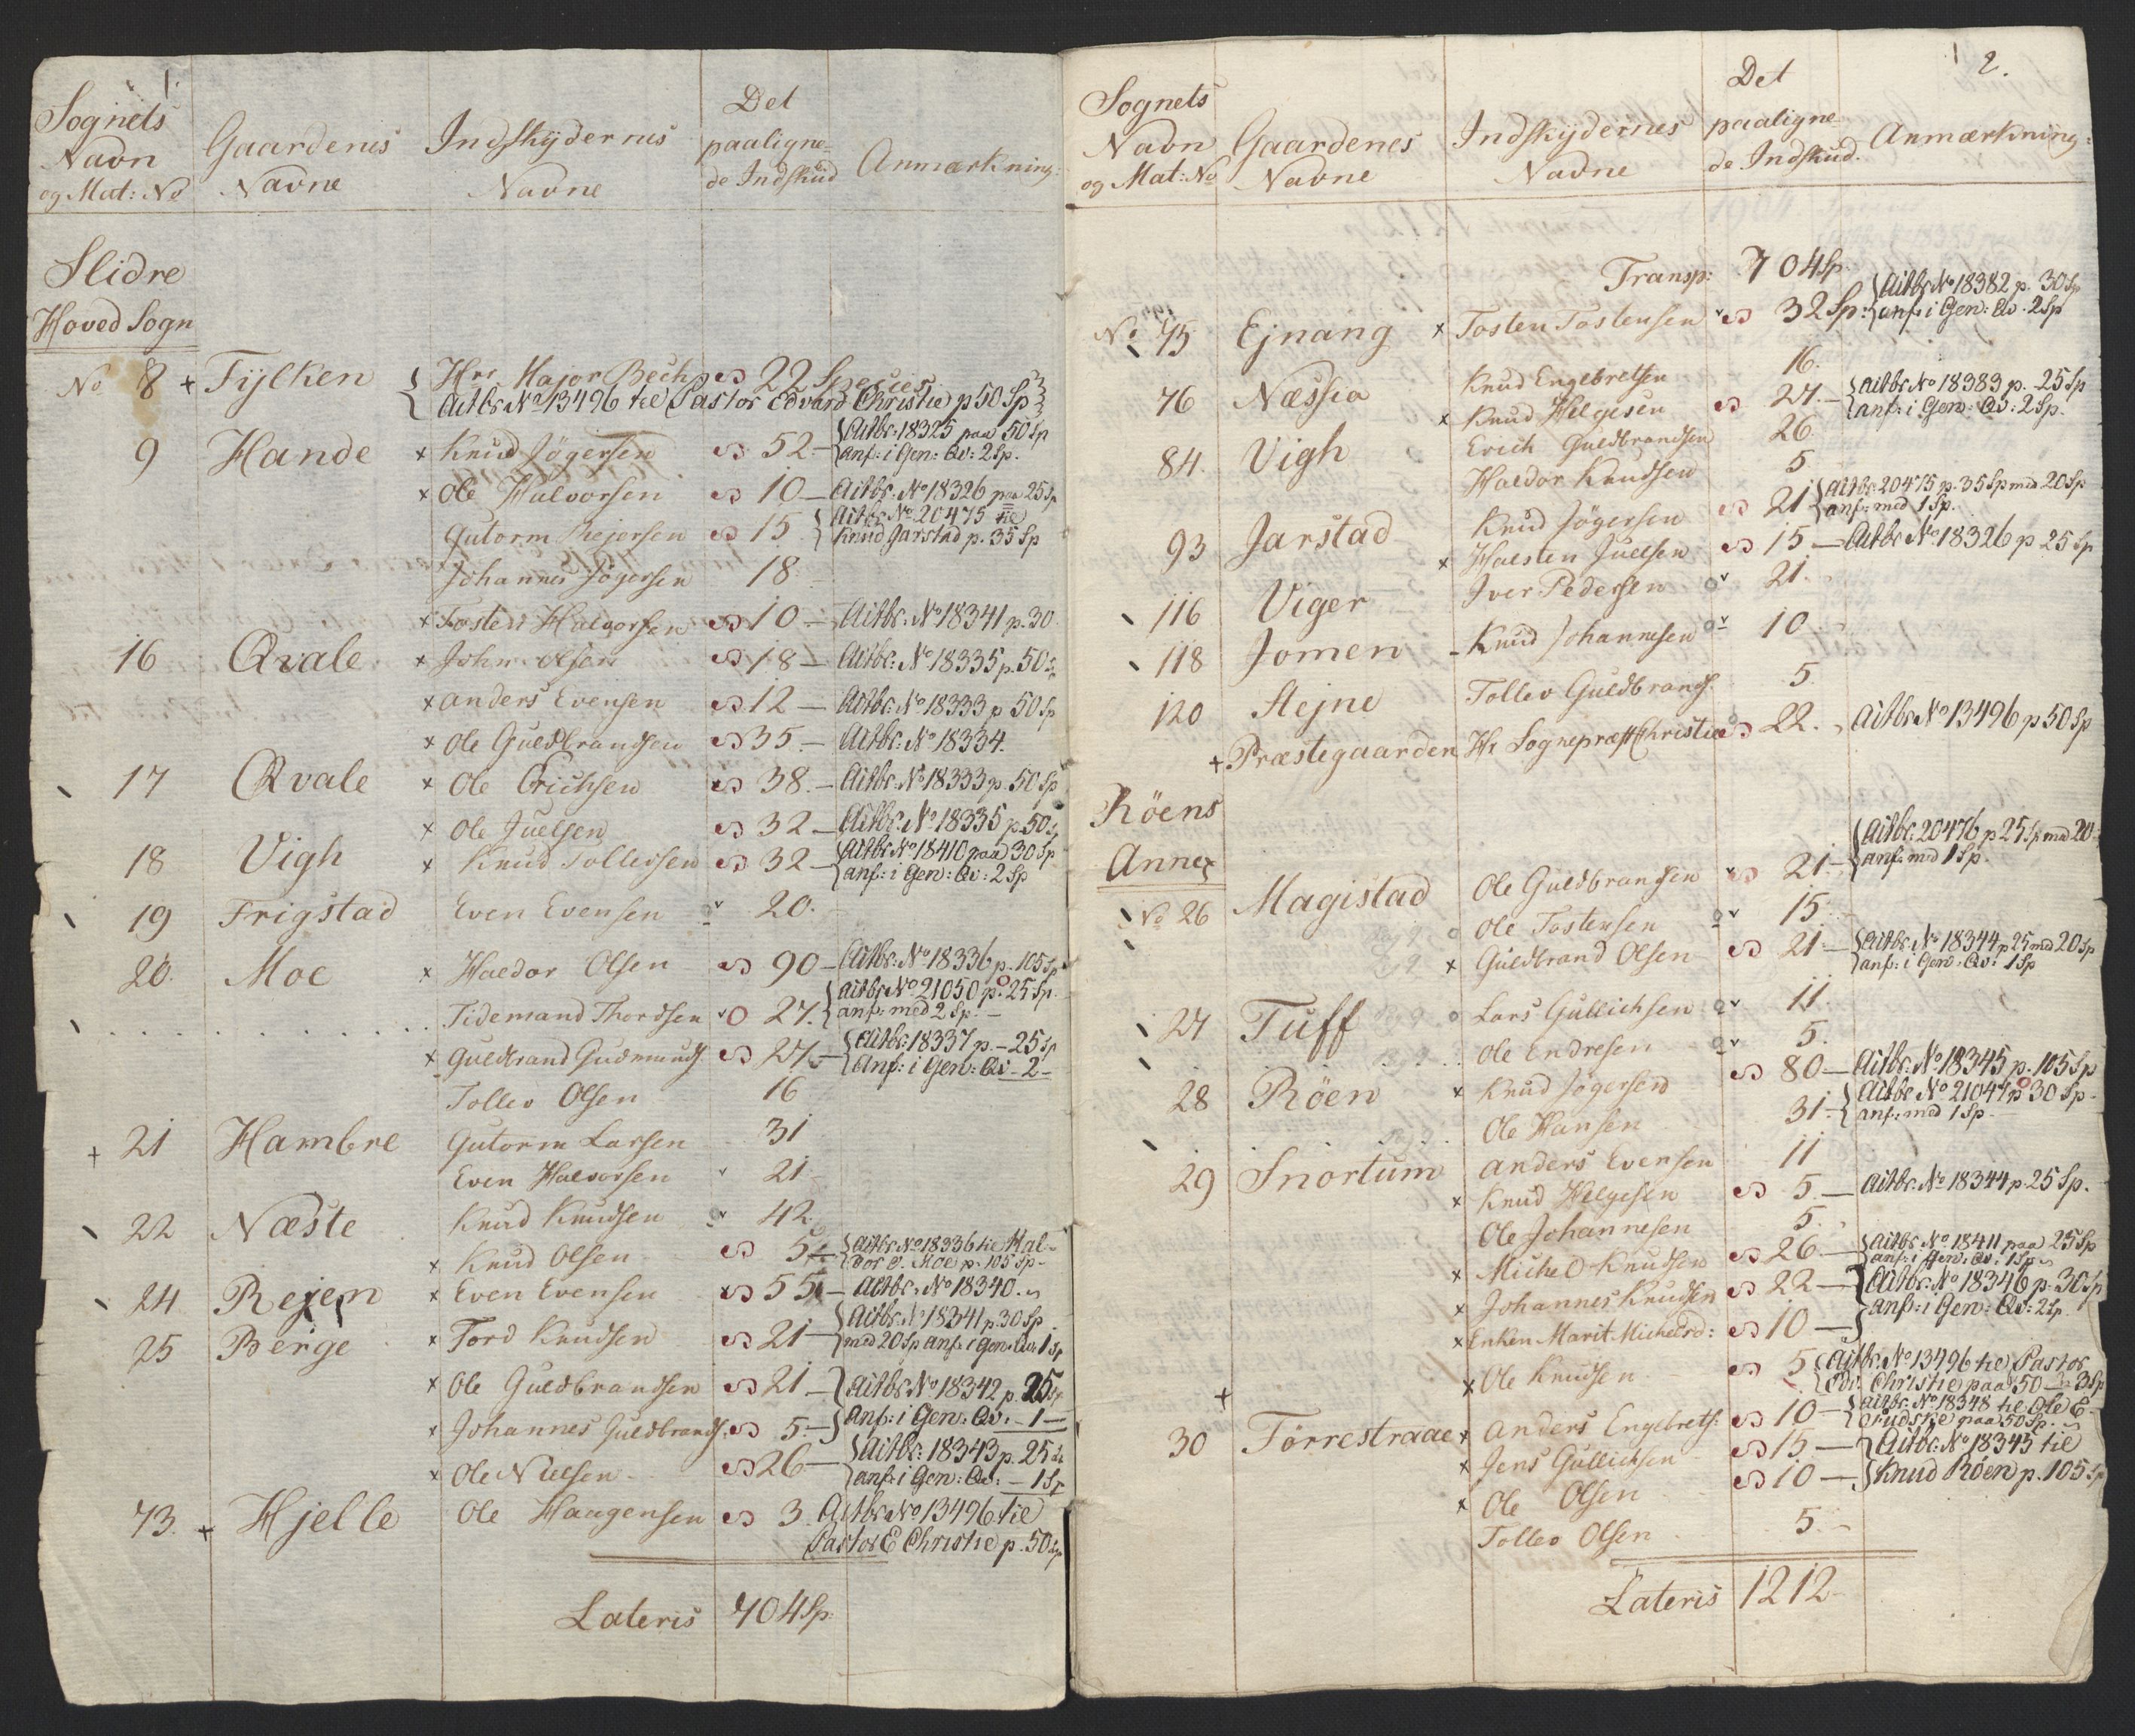 1.
Sognets Navn og Mat: No | Gaardenes Navne | Indskydernes Navne | Det paaligne-de Indskud | Anmærkning:
Slidre
Hoved Sogn
No 8 + Fylken { Hr. Major Bech 22 Species
Actbr No 13496 til Pastor Edvard Christie p 50 Sp
9 Hande x Knud Jögersen 52 — {Actbr: 18325 paa 50 Sp
anf: i Gen: Qv: 2 Sp.
x Ole Halvorsen 10 — Actbr: No 18326 paa 25 Sp
Gutorm Rejersen 15 {Actbr No 20475 til
Knud Jarstad p. 35 Sp
Johannes Jögersen 18
x Tosten Halvorsen 10 — Actbr. No 18341 p. 30
16 Qvale x John Olsen 18 — Actbr: No 18335 p. 50 Sp
x Anders Evensen 12 — Actbr: No 18333 p 50 Sp
x Ole Guldbrandsen 35 — Actbr: No 18334.
17 Qvale x Ole Erichsen 38 — Actbr. No 18333 p. 50 Sp
x Ole Juelsen 32 — Actbr. No 18335 p. 50 Sp
18 Vigh x Knud Tollevsen 32 — {Actbr No 18410 paa 30 Sp
anf: i Gen: Qv: 2 Sp
19 Frigstad Even Evensen 20.
20. Moe x Haldor Olsen 90 — Actbr: No 18336 p. 105 Sp
Tidemand Thordsen 27. {Actbr No 21050 p. 25 Sp.
anf: med 2 Sp. —
x Guldbrand Gudmunds. 27 — {Actbr 18337 p. — 25 Sp
Anf: i Gen: Qv — 2 —
Tollev Olsen 16
+ 21 Hambre Gutorm Larsen 31
Even Halvorsen 21
22 Næste Knud Knudsen 42
x Knud Olsen 5 — {Actbr No 18336 til Hal-
dor O. Moe p. 105 Sp —
24 Rejen x Even Evensen 55 — Actbr. No 18340.
25 Berge x Tord Knudsen 21 — {Actbr. No 18341 p. 30 Sp
med 20 Sp anf: i Gen: Qv 1 Sp
x Ole Guldbrandsen 21 — } Actbr No 18342 p. 25 Sp
x Johannes Guldbrands. 5 — } Anf: i Gen: Qv: — 1 —
x Ole Nielsen 26 — {Actbr: 18343 p. 25 Sp
anf: i Gen: Qv: — 1 Sp
73. + Hjelle Ole Haagensen 3 Actbr No 13496 til
Pastor E Christie p. 50 Sp
Lateris 704 Sp:
2.
Sognets Navn og Mat: No | Gaardenes Navne | Indskydernes Navne | Det paaligne-de Indskud. | Anmærkning:
Transp: 704 Sp.
No 75 Ejnang x Tosten Tostensen 32 Sp: {Actbr No 18382 p. 30 Sp
anf: i Gen: Qv. 2 Sp
76 Næssia Knud Engebretsen 16.
x Knud Helgesen 27. — {Actbr No 18383 p. 25 Sp
anf: i Gen: Qv: 2 Sp.
84. Vigh Erich Guldbrandsen 26.
Haldor Knudsen 5
93 Jarstad Knud Jögersen 21 {Actbr 20475 p. 35 Sp med 20 Sp
anf: med 1 Sp.
x Halsten Juelsen 15 — Actbr No 18326 p 25 Sp
116 Viger Iver Pedersen 21.
118 Jomen Knud Johannesen 10
120 Stejne Tollev Guldbrands. 5
+ Præstegaarden Hr Sognepræst Christie 22. Actbr No 13496 p 50 Sp
Röens
Annex
No 26 Magistad Ole Guldbrandsen 21 — {Actbr. 20476 p 25 Sp med 20
anf: med 1 Sp.
Ole Tostensen 15
x Guldbrand Olsen 21 — {Actbr. No 18344 p 25 med 20 Sp
anf: i Gen: Qv: 1 Sp
27 Tuff Lars Gullichsen 11
Ole Endresen 5.
28 Röen x Knud Jögersen 80 — Actbr: No 18345 p. 105 Sp
Ole Hansen 31 — {Actbr No 21047 p 30 Sp —
anf: med 1 Sp —
29 Snortum Anders Evensen 11
x Knud Helgesen 5 — Actbr. No 18344 p 25 Sp.
Ole Johannesen 5.
x Michel Knudsen 26 — {Actbr No 18411 paa 25 Sp
anf: i Gen: Qv: 1 Sp
x Johannes Knudsen 22 — {Actbr. No 18346 p. 30 Sp
x Enken Marit Michelsd: 10 — } anf: i Gen: Qv: 2 Sp.
+ x Ole Knudsen 5 {Actbr. No 13496 til Pastor
Edv. Christie paa 50 — 3 Sp
30 Törrestraae x Anders Engebrets: 10 — {Actbr. No 18348 til Ole E
paa 50 Sp.
x Jens Gullichsen 15 — {Actbr. No 18345 til
x Ole Olsen 10 — } Knud Röen p. 105 Sp
Tollev Olsen 5 —
Lateris 1212 —